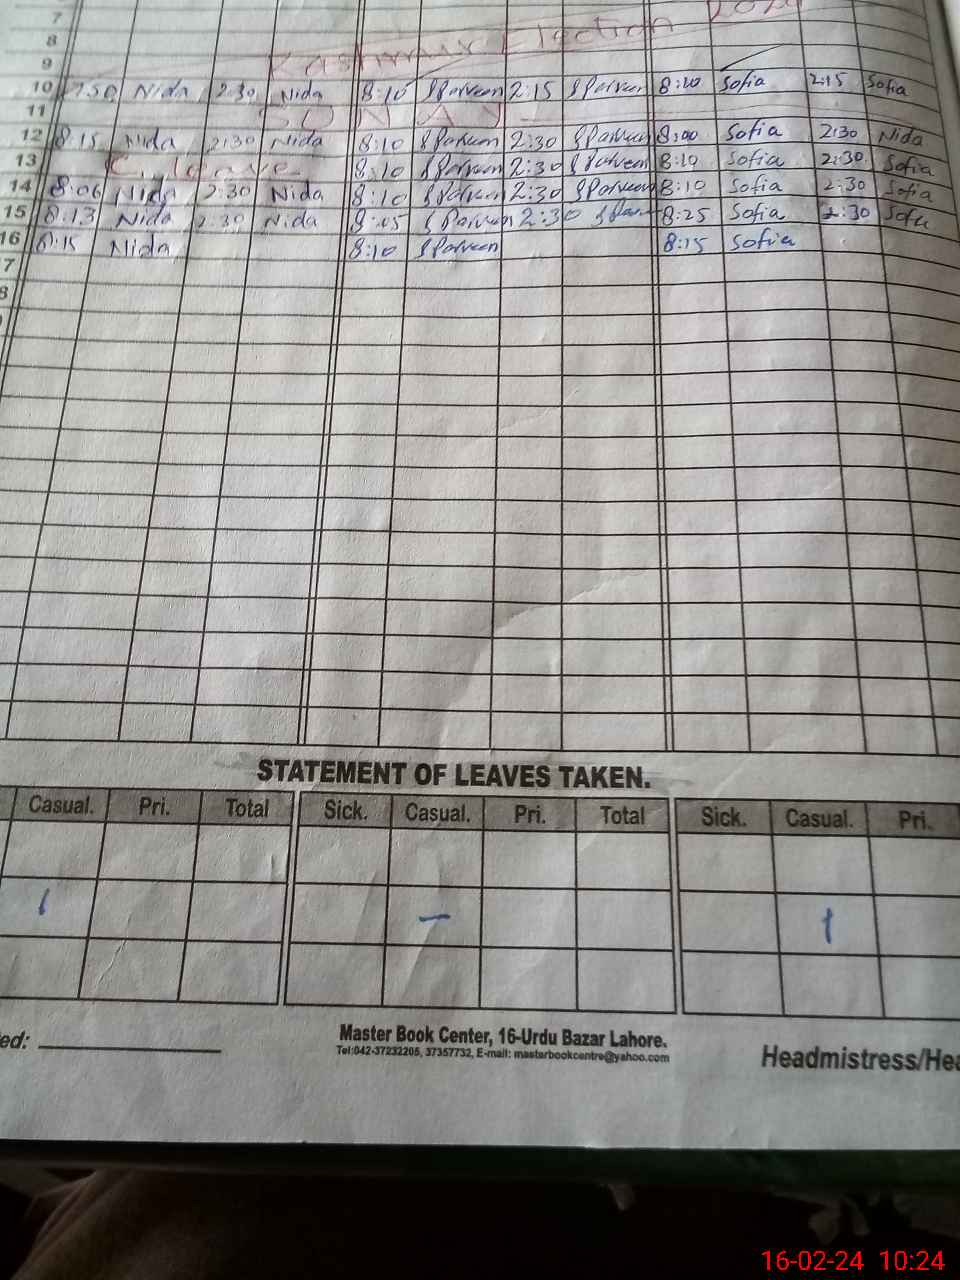 7
8
9 Kashmir Election
10 7:50 Nida 2:30 Nida 8:10 SParveen 2:15 SParveen 8:20 Sofia 2:15 Sofia
11 SUNDAY
12 8:15 Nida 2:30 Nida 8:10 SParveen 2:30 SParveen 8:00 Sofia 2:30 Nida
13 C. leave 8:10 SParveen 2:30 SParveen 8:10 Sofia 2:30 Sofia
14 8:06 Nida 2:30 Nida 8:10 SParveen 2:30 SParveen 8:10 Sofia 2:30 Sofia
15 8:13 Nida 2:30 Nida 8:05 SParveen 2:30 8:25 Sofia 2:30 Sofia
16 8:15 Nida 8:10 SParveen 8:15 Sofia
7
8
STATEMENT OF LEAVES TAKEN.
Casual. Pri. Total Sick. Casual. Pri. Total Sick. Casual. Pri.
1 – 1
ed:
Master Book Center, 16-Urdu Bazar Lahore.
Tel:042-37232205, 37357732, E-mail: masterbookcentre@yahoo.com
Headmistress/Hea
16-02-24 10:24